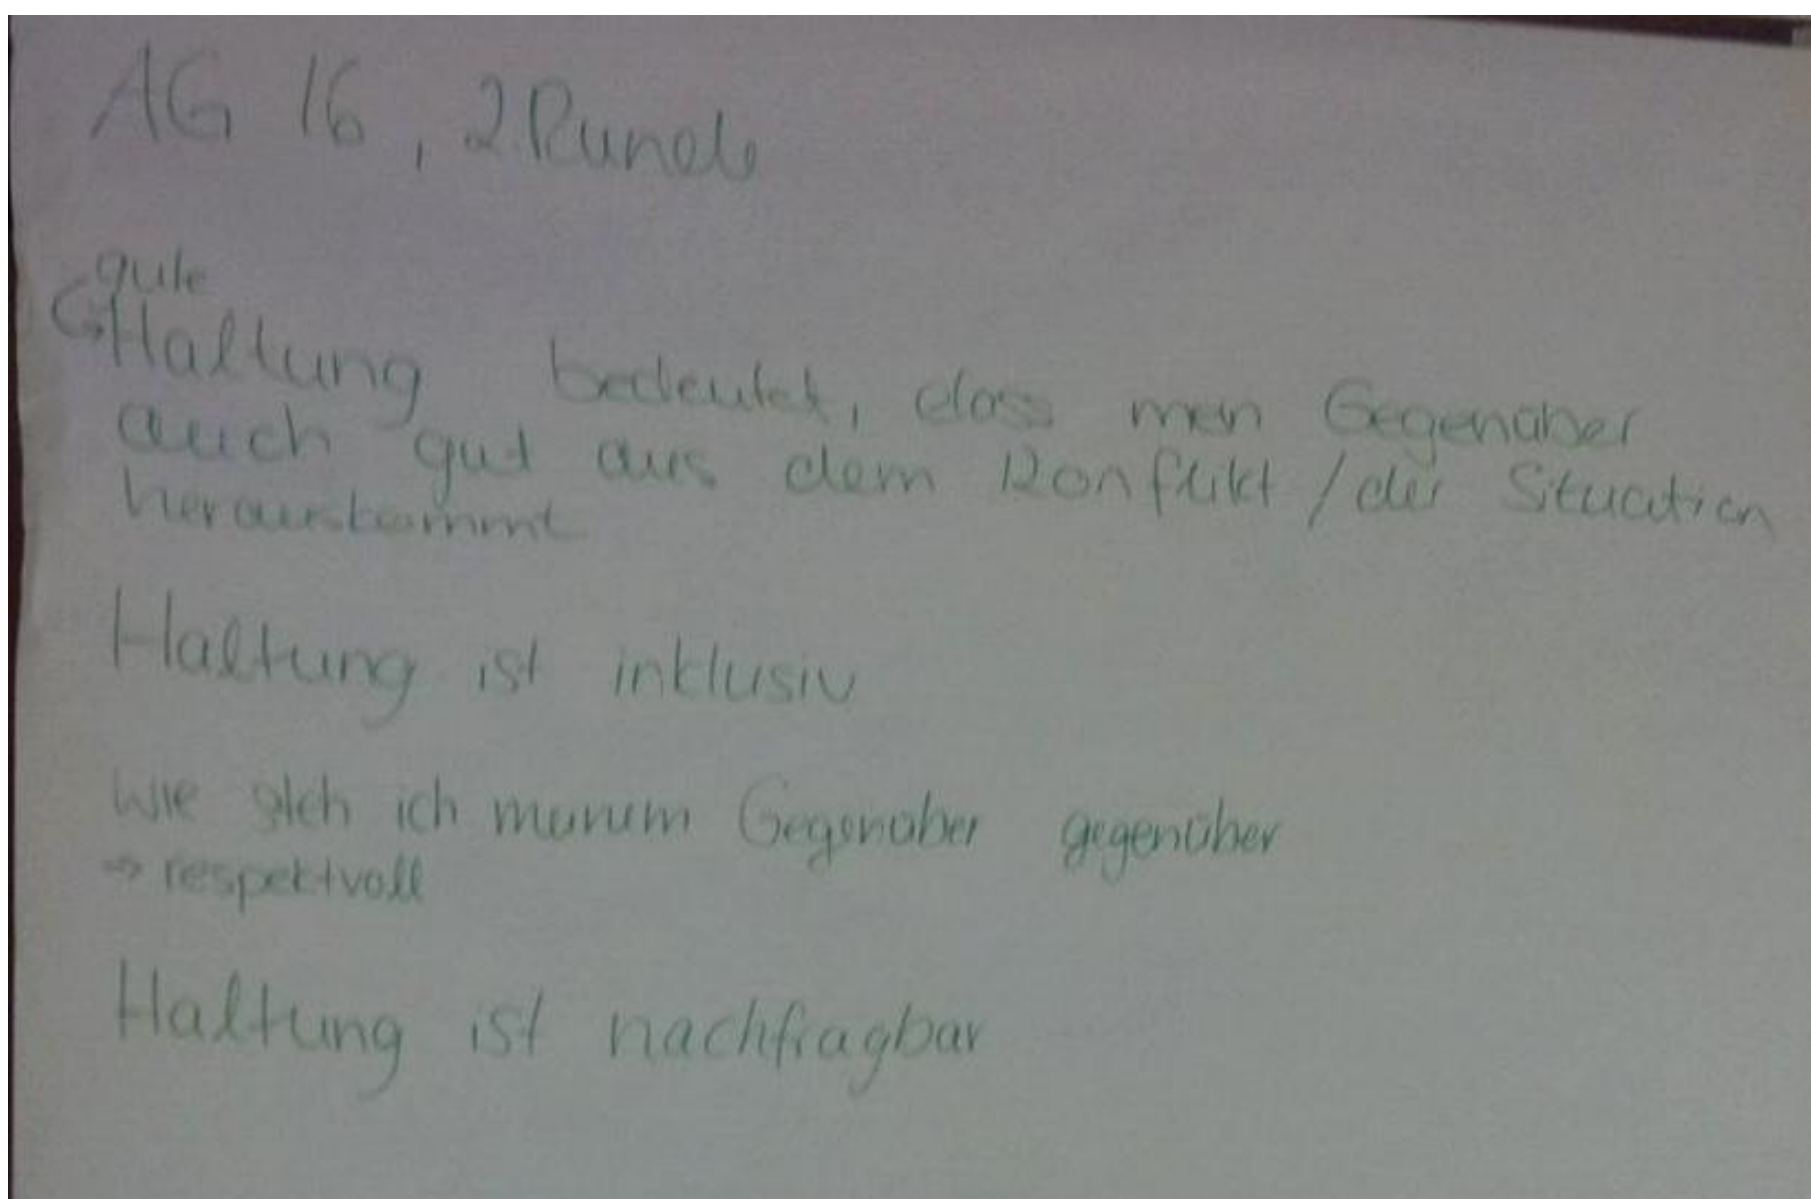 AG 16, 2. Runde
gute
Haltung bedeutet, dass men Gegenüber
auch gut aus dem Konflikt / der Situation
herauskommt
Haltung ist inklusiv
Wie steh ich meinem Gegenüber gegenüber
⇒ respektvoll
Haltung ist nachfragbar